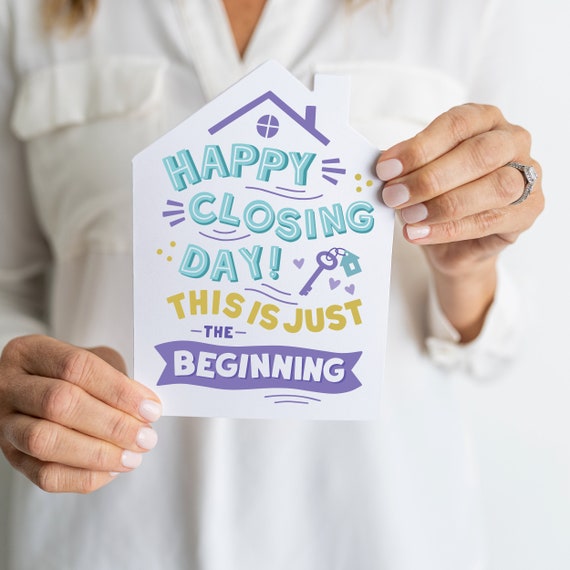 HAPPY
CLOSING
DAY!
THIS IS JUST
-THE-
BEGINNING